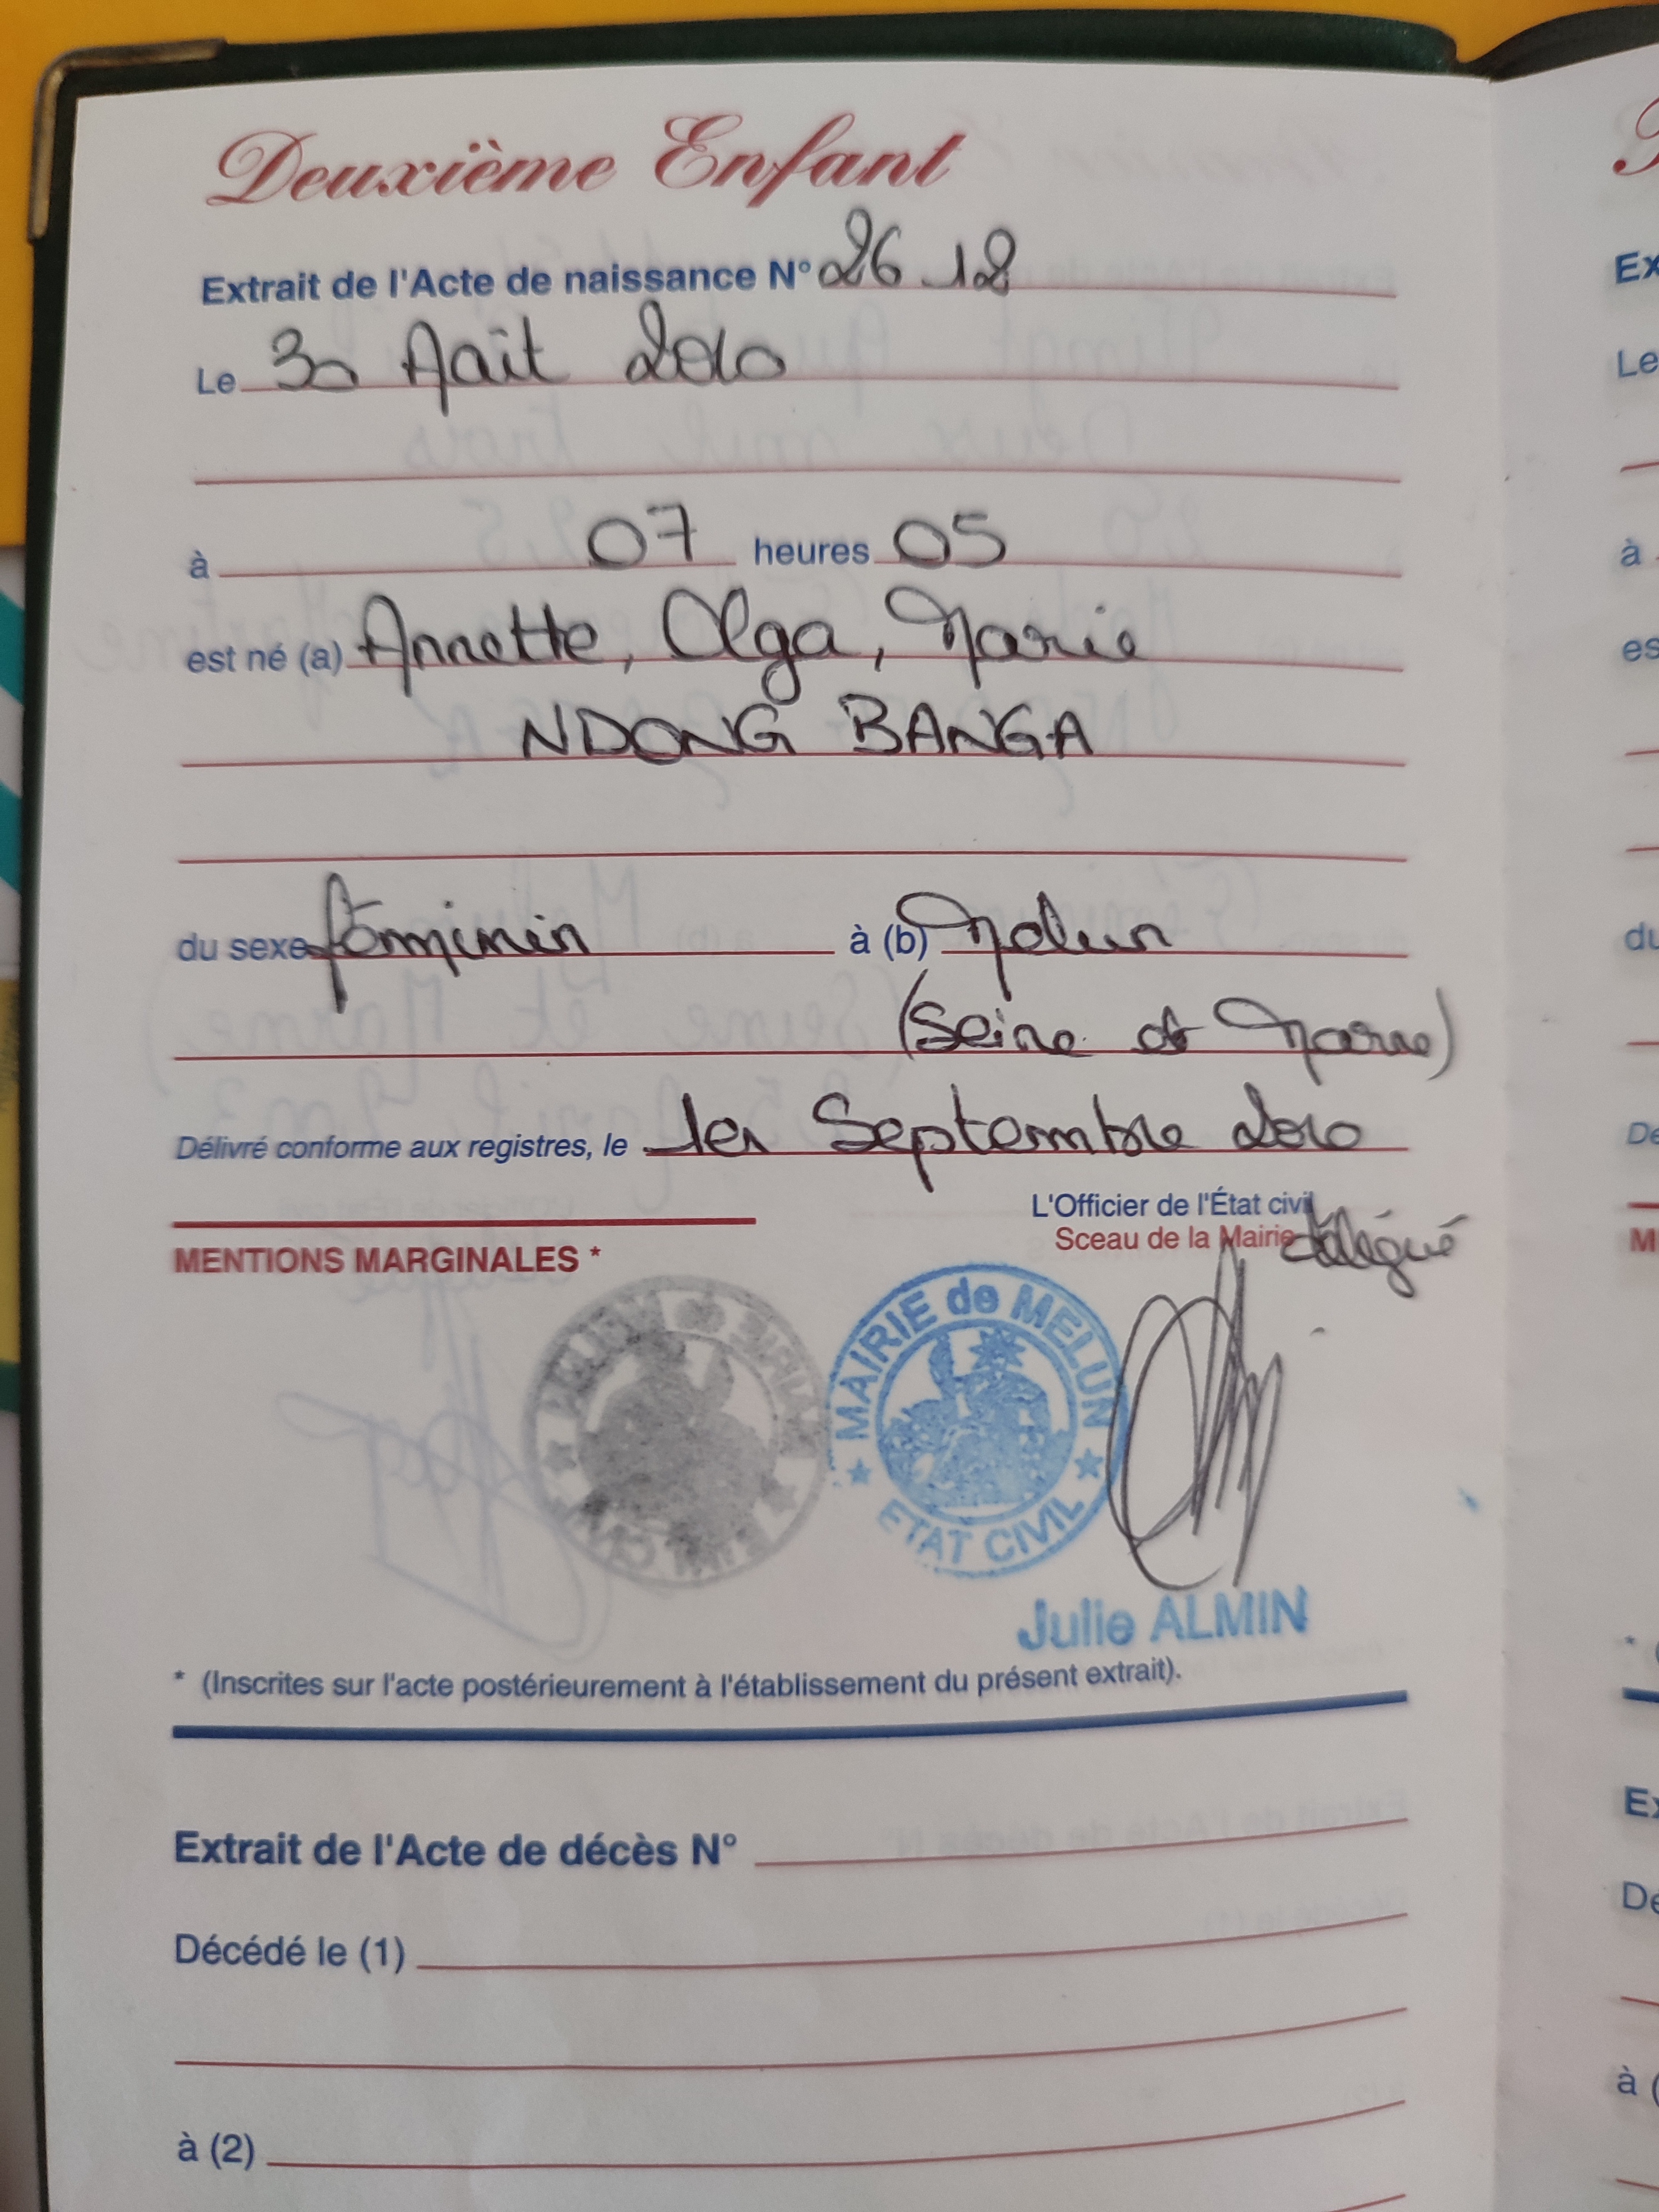 Deuxième Enfant
Extrait de l'Acte de naissance N° 26 12
Le 30 Août 2010
à 07 heures 05
est né (a) Annette, Olga, Marie
NDONG BANGA
du sexe féminin à (b) Melun
(Seine et Marne)
Délivré conforme aux registres, le 1er Septembre 2010
L'Officier de l'État civil
Sceau de la Mairie délégué
MENTIONS MARGINALES *
MAIRIE de MELUN
ETAT CIVIL
Julie ALMIN
* (Inscrites sur l'acte postérieurement à l'établissement du présent extrait).
Extrait de l'Acte de décès N°
Décédé le (1)
à (2)
Ex
Le
à
es
du
De
M
*
Ex
Dé
à (